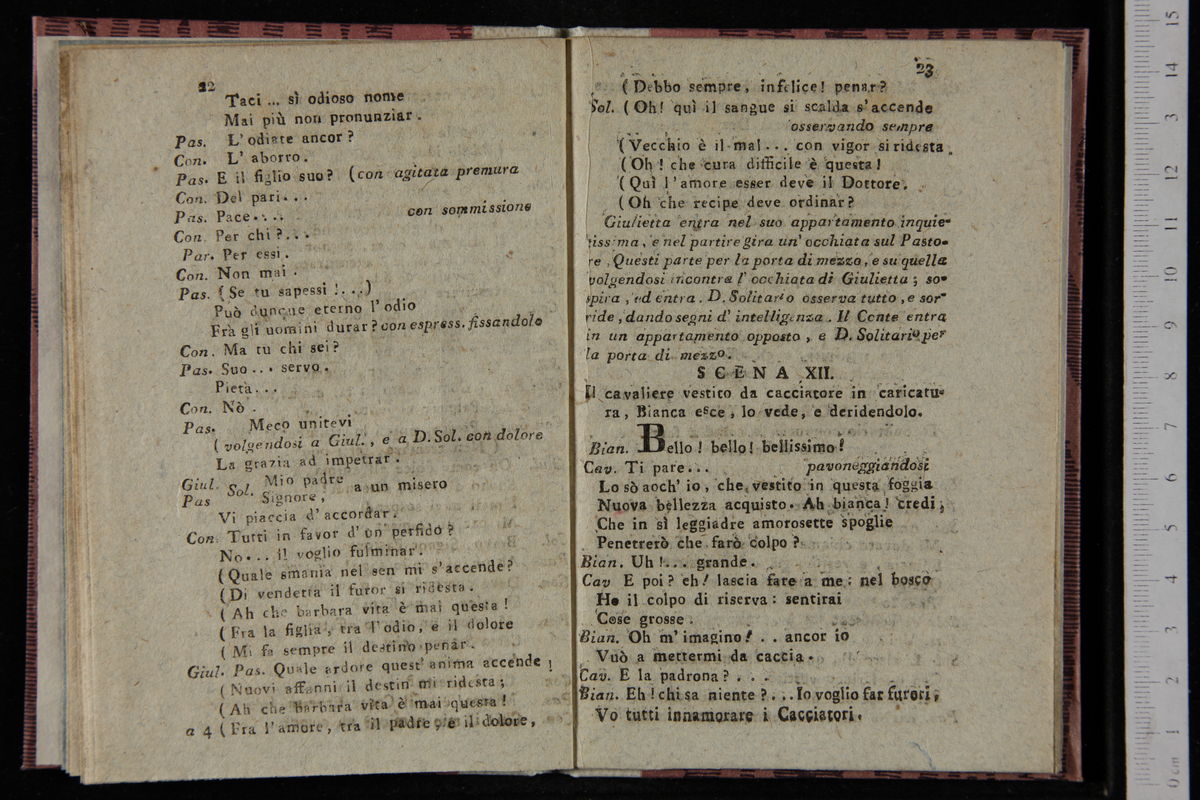 22
Taci ... sì odioso nome
Mai più non pronunziar.
Pas. L' odiate ancor?
Con. L' aborro.
Pas. E il figlio suo? (con agitata premura
Con. Del pari...
Pas. Pace.... con sommissione
Con. Per chi?...
Par. Per essi.
Con. Non mai.
Pas. (Se tu sapessi!...)
Può dunque eterno l'odio
Frà gli uomini durar? con espress. fissandolo
Con. Ma tu chi sei?
Pas. Suo... servo.
Pietà...
Con. Nò.
Pas. Meco unitevi
(volgendosi a Giul., e a D. Sol. con dolore
La grazia ad impetrar.
Giul. Sol. Mio padre a un misero
Pas Sol. Signore,
Vi piaccia d'accordar.
Con. Tutti in favor d'un perfido?
No... il voglio fulminar.
(Quale smania nel sen mi s'accende?
(Di vendetta il furor si ridesta.
(Ah che barbara vita è mai questa!
(Fra la figlia, tra l'odio, e il dolore
(Mi fa sempre il destino penar.
Giul. Pas. Quale ardore quest' anima accende!
(Nuovi affanni il destin mi ridesta;
(Ah che barbara vita è mai questa!
a 4 (Fra l'amore, tra il padre, e il dolore,
23
(Debbo sempre, infelice! penar?
Sol. (Oh! quì il sangue si scalda s'accende
osservando sempre
(Vecchio è il mal... con vigor si ridesta.
(Oh! che cura difficile è questa!
(Quì l'amore esser deve il Dottore.
(Oh che recipe deve ordinar?
Giulietta entra nel suo appartamento inquie-
tissima, e nel partire gira un' occhiata sul Pasto-
re. Questi parte per la porta di mezzo, e su quella
volgendosi incontra l' occhiata di Giulietta; so-
spira, ed entra. D. Solitario osserva tutto, e sor-
ride, dando segni d' intelligenza. Il Conte entra
in un appartamento opposto, e D. Solitario per
la porta di mezzo.
SCENA XII.
Il cavaliere vestito da cacciatore in caricatu-
ra, Bianca esce, lo vede, e deridendolo.
Bian. Bello! bello! bellissimo!
Cav. Ti pare... pavoneggiandosi
Lo sò anch' io, che vestito in questa foggia
Nuova bellezza acquisto. Ah bianca! credi;
Che in sì leggiadre amorosette spoglie
Penetrerò che farò colpo?
Bian. Uh!... grande.
Cav E poi? eh! lascia fare a me: nel bosco
Ho il colpo di riserva: sentirai
Cose grosse.
Bian. Oh m'imagino!.. ancor io
Vuò a mettermi da caccia.
Cav. E la padrona?...
Bian. Eh! chi sa niente?... Io voglio far furori,
Vo tutti innamorare i Cacciatori.
0 cm 1 2 3 4 5 6 7 8 9 10 11 12 13 14 15